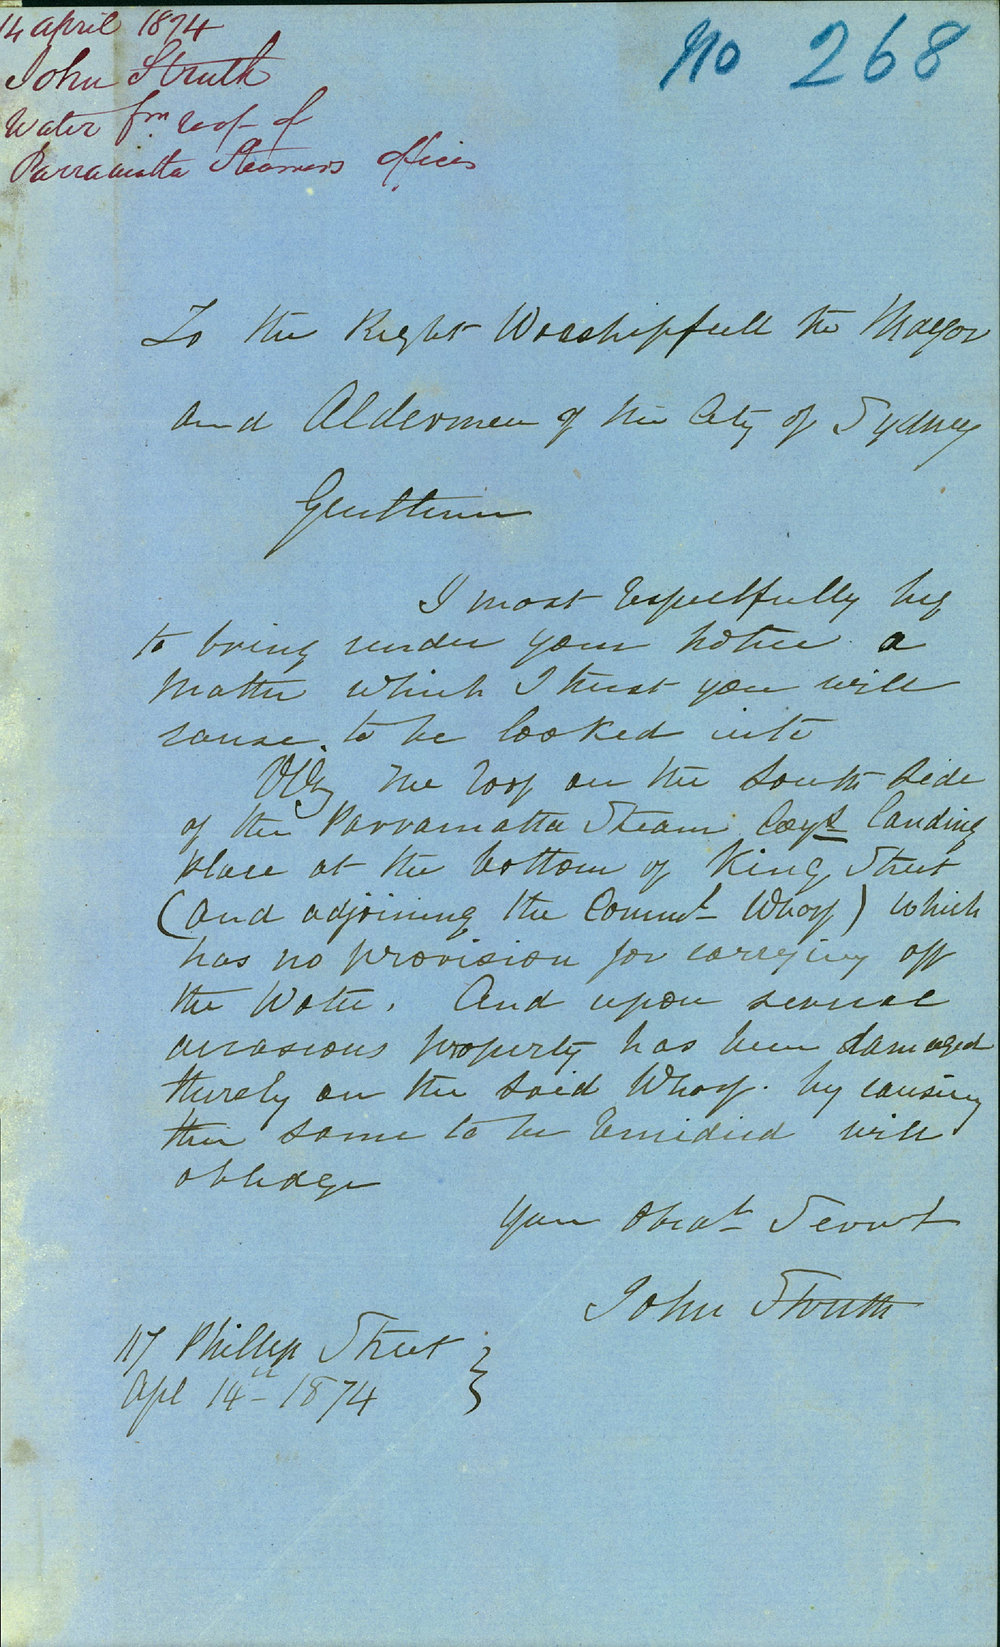 14 April 1874
John Struth
Water fm roof of
Parramatta Steamers offices
No 268
To the Right Worshipfull the Mayor
and Aldermen of the City of Sydney
Gentlemen
I most respectfully beg
to bring under your notice a
matter which I trust you will
cause to be looked into
Viz The roof on the South side
of the Parramatta Steam Coys Landing
place at the bottom of King Street
(and adjoining the Commt Wharf) which
has no provision for carrying off
the Water. And upon several
occasions property has been damaged
thereby on the said Wharf. by causing
the same to be remidied will
obledge
Your Obedt Servt
John Struth
117 Phillip Street
Apl 14th 1874